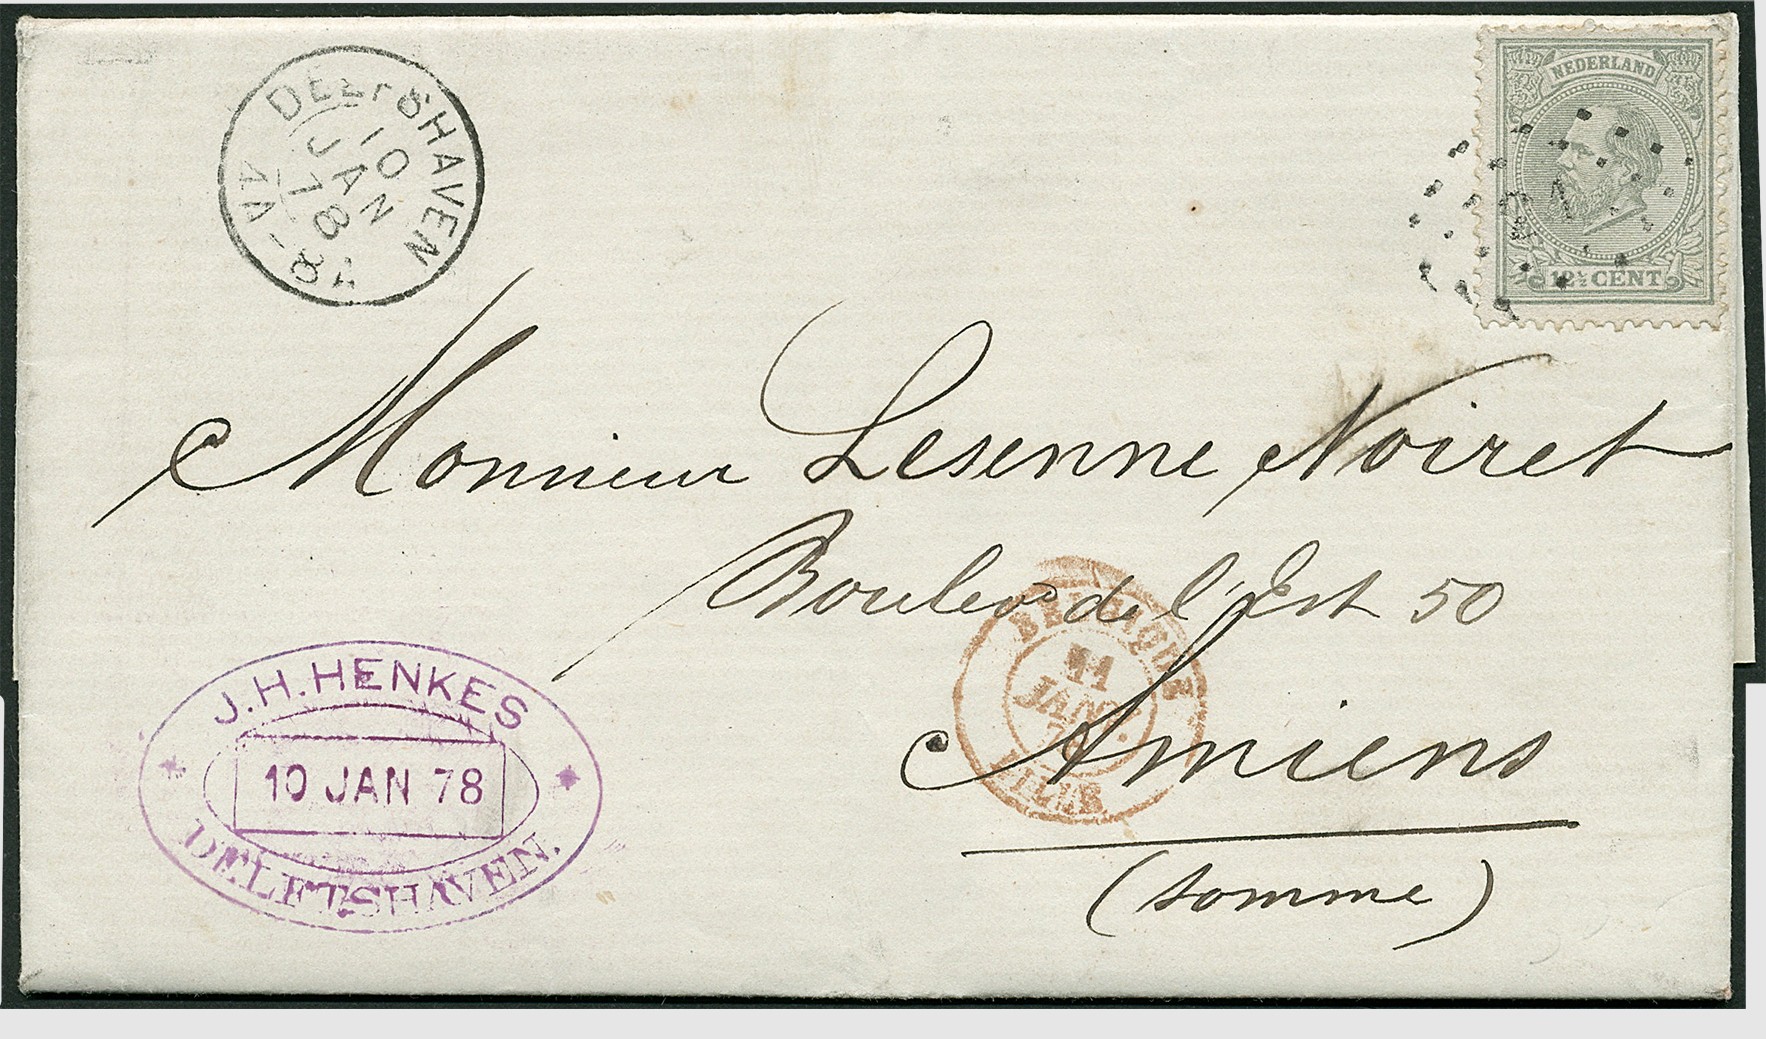 DELFSHAVEN
10
JAN
78
NEDERLAND
12½ CENT
Monsieur Lesenne Noiret
Boulevd de l'Est 50
Amiens
(Somme)
BELGIQUE
11
JANV.
LILLE
J.H.HENKES
10 JAN 78
DELFTSHAVEN.